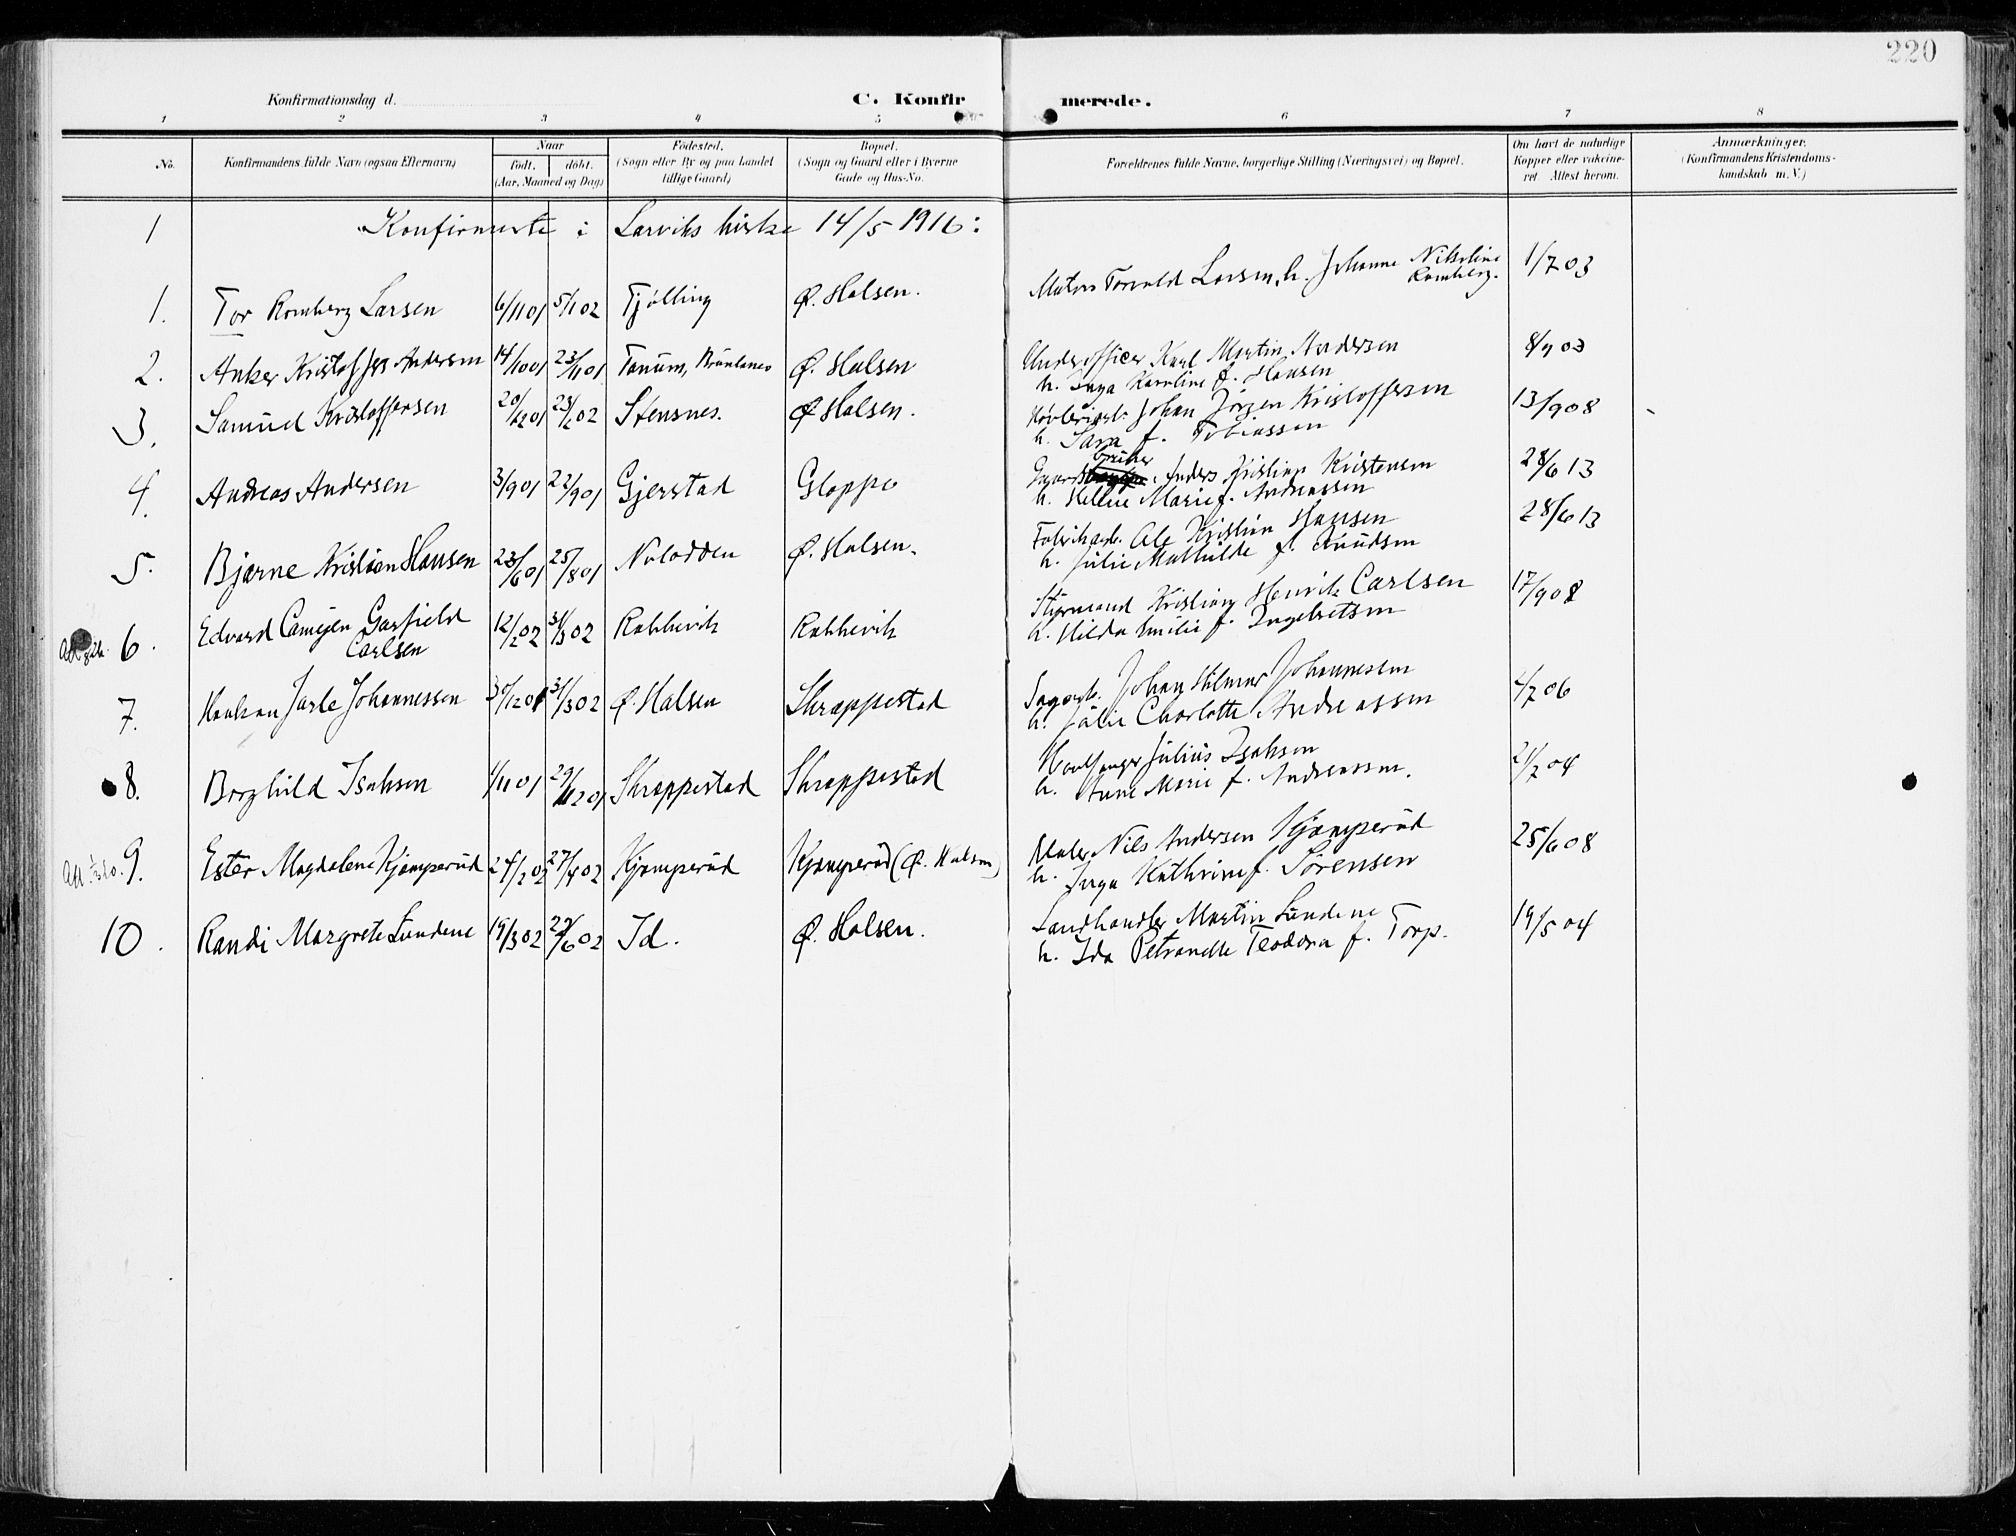 220
Konfirmationsdag d.
C. Konfirmerede.
1 2 3 4 5 6 7 8
No. Konfirmandens fulde Navn (ogsaa Efternavn) Naar født. døbt. (Aar, Maaned og Dag) Fødested. (Sogn eller By og paa Landet tillige Gaard) Bopæl. (Sogn og Gaard eller i Byerne Gade og Hus-No. Forældrenes fulde Navne, borgerlige Stilling (Næringsvei) og Bopæl. Om havt de naturlige Kopper eller vakcineret Attest herom. Anmærkninger. (Konfirmandens Kristendomskundskab m. V.)
1 Konfirmerte i Larviks kirke 14/5 1916:
1. Tor Romberg Larsen 6/11 01 5/1 02 Tjølling Ø. Halsen. Torvald Larsen, h. Johanne Nikoline Romberg. 1/7 03
2. Anker Kristoffer Andersen 14/10 01 23/11 01 Tanum, Brunlanes Ø. Halsen Underofficer Karl Martin Andersen
h. Inga Karoline f. Hansen 8/9 03
3. Samuel Kristoffersen 20/12 01 23/2 02 Stensnes. Ø Halsen. Johan Jörgen Kristoffersen
h. Sara f. Tobiassen 13/9 08
4. Andreas Andersen 3/9 01 22/9 01 Gjerstad Gloppe bruker Anders Kristian Kristensen
h. Helene Marie f. Andreassen 28/6 13
5. Bjarne Kristian Hansen 23/6 01 25/8 01 Nalodden Ø. Halsen. Fabrikarb. Ole Kristian Hansen
h. Julie Mathilde f. Knudsen 28/6 13
6. Edvard Camejen Garfield Carlsen 12/2 02 31/3 02 Rakkevik Rakkevik Styrmand Kristian Henrik Carlsen
h. Hilda Emilie f. Ingebretsen 17/9 08
7. Haakon Jarle Johannessen 30/12 01 31/3 02 Ø. Halsen Skrappestad Sagarb. Johan Hilmar Johannessen
h. Julie Charlotte Andreassen 4/7 06
8. Borghild Isaksen 4/11 01 29/12 01 Skrappestad Skrappestad Hvalfanger Julius Isaksen
h. Anne Marie f. Andreassen. 21/7 04
9. Ester Magdalene Kjæmperud 24/2 02 27/4 02 Kjæmperud Kjæmperud (Ø. Halsen) Maler Nils Andersen Kjæmperud
h. Inga Kathrine f. Sørensen 25/6 08
10. Randi Margrete Lundene 19/3 02 22/6 02 Id. Ø. Halsen. Landhandler Martin Lundene
h. Ida Petronelle Teodora f. Torp. 19/5 04